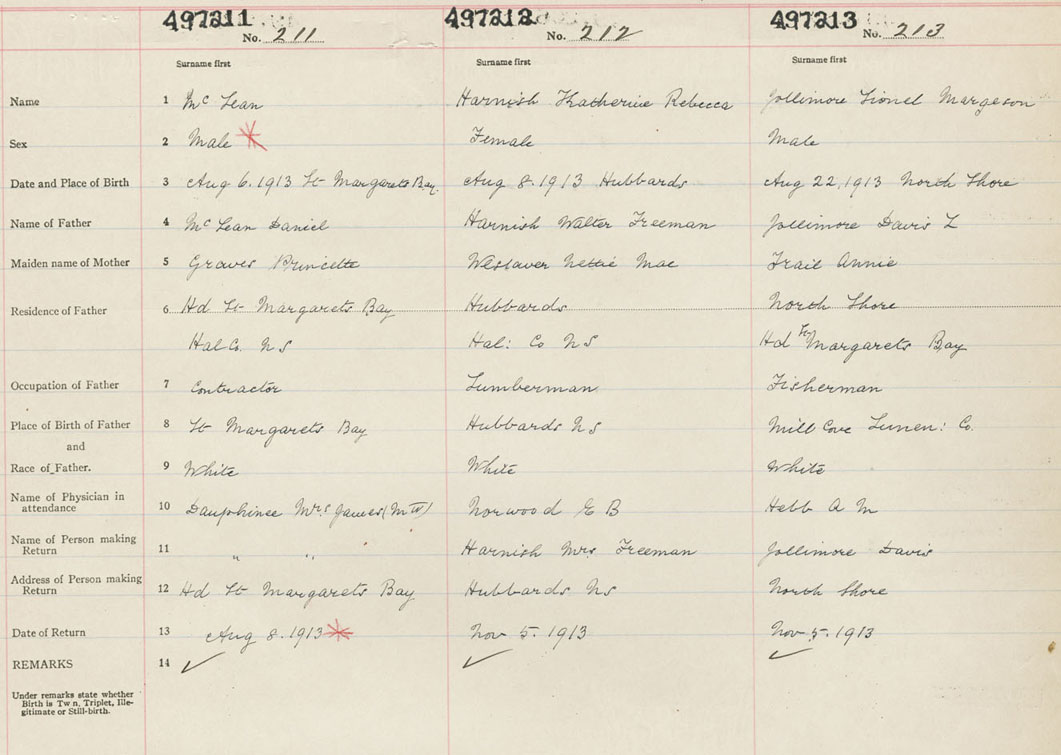 497211 497212 497213
No. 211 No. 212 No. 213
Surname first Surname first Surname first
Name 1 Mc Lean Harnish Katherine Rebecca Jollimore Lionel Margeson
Sex 2 Male Female Male
Date and Place of Birth 3 Aug 6. 1913 St Margarets Bay. Aug 8. 1913 Hubbards Aug 22, 1913 North Shore
Name of Father 4 Mc Lean Daniel Harnish Walter Freeman Jollimore Davis L
Maiden name of Mother 5 Graves Westaver Nettie Mae Trail Annie
Residence of Father 6 Hd St Margarets Bay Hubbards North Shore
Hal Co. N S Hal: Co N S Hd St Margarets Bay
Occupation of Father 7 Contractor Lumberman Fisherman
Place of Birth of Father 8 St Margarets Bay Hubbards N S Mill Cove Lunen: Co.
and
Race of Father. 9 White White White
Name of Physician in
attendance 10 Dauphinee Mrs James (M W) Norwood E B Hebb A M
Name of Person making
Return 11 " " " Harnish Mrs Freeman Jollimore Davis
Address of Person making
Return 12 Hd St Margarets Bay Hubbards N S North Shore
Date of Return 13 Aug 8. 1913 Nov 5. 1913 Nov 5. 1913
REMARKS 14
Under remarks state whether
Birth is Tw n, Triplet, Ille-
gitimate or Still-birth.